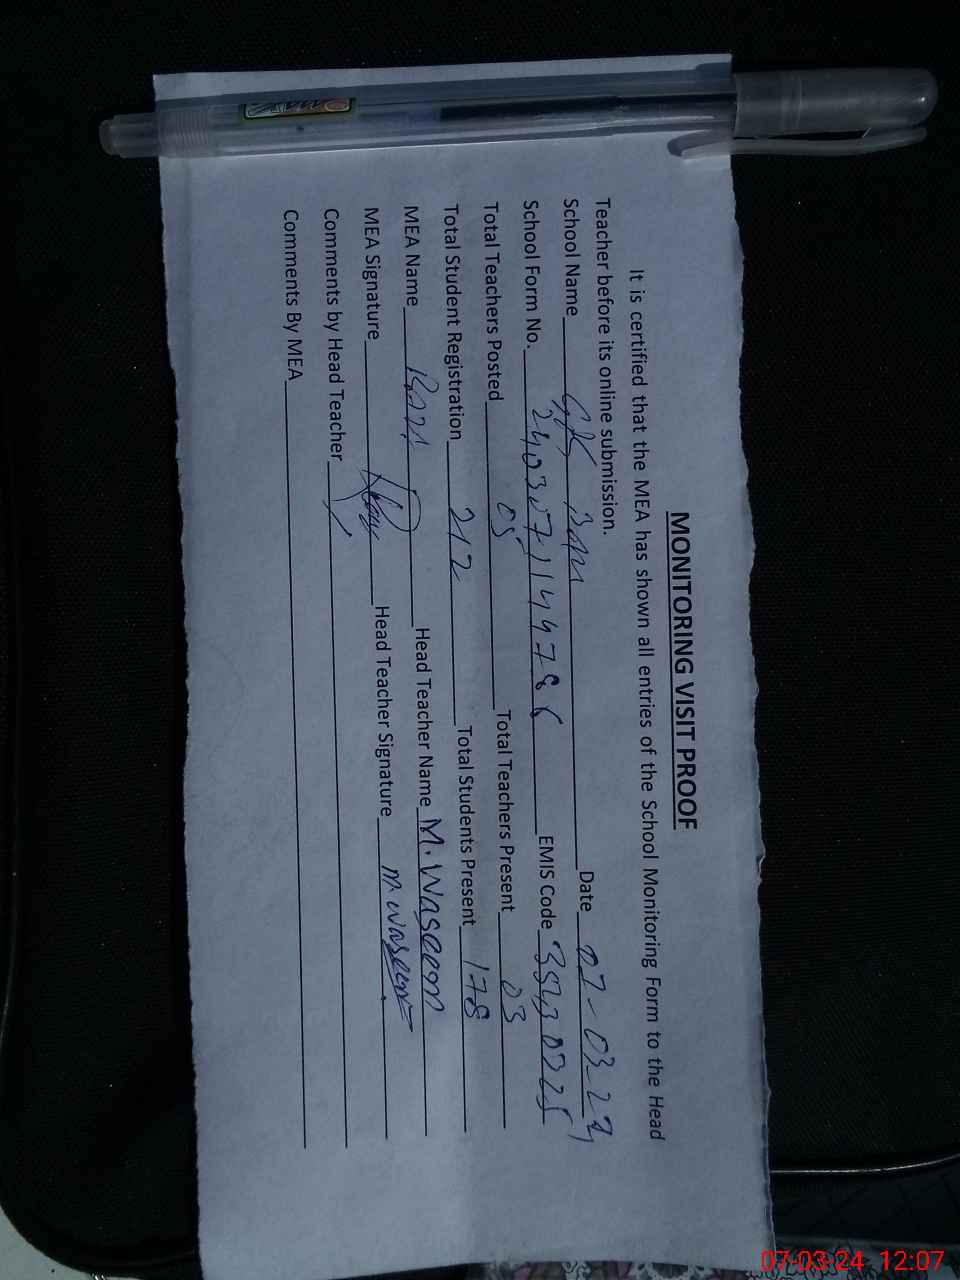 MONITORING VISIT PROOF
It is certified that the MEA has shown all entries of the School Monitoring Form to the Head
Teacher before its online submission.
School Name Date 07-03-24
School Form No. EMIS Code
Total Teachers Posted 05 Total Teachers Present 03
Total Student Registration 212 Total Students Present 178
MEA Name Head Teacher Name M. Waseem
MEA Signature Head Teacher Signature M. Waseem
Comments by Head Teacher
Comments By MEA
07-03-24 12:07